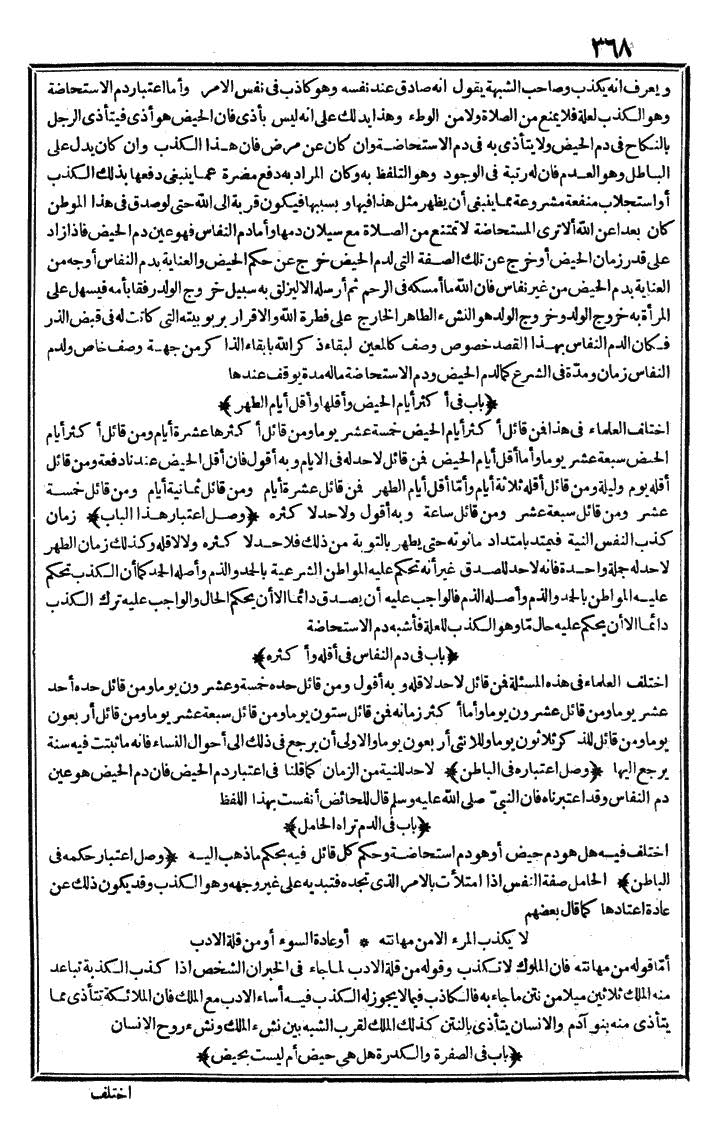 ٣٦٨
ويعرف انه يكذب وصاحب الشبهة يقول انه صادق عند نفسه وهو كاذب فى نفس الامر وأما اعتبار دم الاستحاضة
وهو الكذب لعلة فلا يمنع من الصلاة ولا من الوطء وهذا يدلك على انه ليس بأذى فان الحيض هو أذى فيتأذى الرجل
بالنكاح فى دم الحيض ولا يتأذى به فى دم الاستحاضة وان كان عن مرض فان هذا الكذب وان كان يدل على
الباطل وهو العدم فان له رتبة فى الوجود وهو التلفظ به وكان المراد به دفع مضرة عما ينبغى دفعها بذلك الكذب
أو استجلاب منفعة مشروعة مما ينبغى أن يظهر مثل هذا فيها وبسببها فيكون قربة الى الله حتى لو صدق فى هذا الموطن
كان بعدا عن الله ألا ترى المستحاضة لا تمتنع من الصلاة مع سيلان دمها وأما دم النفاس فهو عين دم الحيض فاذا زاد
على قدر زمان الحيض أو خرج عن تلك الصفة التى لدم الحيض خرج عن حكم الحيض والعناية بدم النفاس أوجه من
العناية بدم الحيض من غير نفاس فان الله ما أمسكه فى الرحم ثم أرسله الا ليزلق به سبيل خروج الولد رفقا بأمه فيسهل على
المرأة به خروج الولد وخروج الولد هو النشء الطاهر الخارج على فطرة الله والاقرار بربوبيته التى كانت له فى قبض الذر
فكان الدم النفاس بهذا القصد خصوص وصف كالمعين لبقاء ذكر الله بابقاء الذاكر من جهة وصف خاص ولدم
النفاس زمان ومدّة فى الشرع كما لدم الحيض ودم الاستحاضة ماله مدة يوقف عندها
﴿باب فى أكثر أيام الحيض وأقلها وأقل أيام الطهر﴾
اختلف العلماء فى هذا فمن قائل أكثر أيام الحيض خمسة عشر يوما ومن قائل أكثرها عشرة أيام ومن قائل أكثر أيام
الحيض سبعة عشر يوما وأما أقل أيام الحيض فمن قائل لا حد له فى الايام وبه أقول فان أقل الحيض عندنا دفعة ومن قائل
أقله يوم وليلة ومن قائل أقله ثلاثة أيام وأمّا أقل أيام الطهر فمن قائل عشرة أيام ومن قائل ثمانية أيام ومن قائل خمسة
عشر ومن قائل سبعة عشر ومن قائل ساعة وبه أقول ولا حد لاكثره ﴿وصل اعتبار هذا الباب﴾ زمان
كذب النفس النية فيمتد بامتداد ما نوته حتى يطهر بالتوبة من ذلك فلا حد لاكثره ولا لاقله وكذلك زمان الطهر
لا حد له جملة واحدة فانه لا حد للصدق غير أنه تحكم عليه المواطن الشرعية بالحمد والذم وأصله الحمد كما أن الكذب تحكم
عليه المواطن بالحمد والذم وأصله الذم فالواجب عليه أن يصدق دائما الا أن يحكم الحال والواجب عليه ترك الكذب
دائما الا أن يحكم عليه حال مّا وهو الكذب للعلة فأشبه دم الاستحاضة
﴿باب فى دم النفاس فى أقله وأكثره﴾
اختلف العلماء فى هذه المسئلة فمن قائل لا حد لاقله وبه أقول ومن قائل حده خمسة وعشرون يوما ومن قائل حده أحد
عشر يوما ومن قائل عشرون يوما وأما أكثر زمانه فمن قائل ستون يوما ومن قائل سبعة عشر يوما ومن قائل أربعون
يوما ومن قائل للذكر ثلاثون يوما وللانثى أربعون يوما والاولى أن يرجع فى ذلك الى أحوال النساء فانه ما ثبتت فيه سنة
يرجع اليها ﴿وصل اعتباره فى الباطن﴾ لا حد للنية من الزمان كما قلنا فى اعتبار دم الحيض فان دم الحيض هو عين
دم النفاس وقد اعتبرناه فان النبىّ صلى الله عليه وسلم قال للحائض أنفست بهذا اللفظ
﴿باب فى الدم تراه الحامل﴾
اختلف فيه هل هو دم حيض أو هو دم استحاضة وحكم كل قائل فيه بحكم ما ذهب اليه ﴿وصل اعتبار حكمه فى
الباطن﴾ الحامل صفة النفس اذا امتلأت بالامر الذى تجده فتبديه على غير وجهه وهو الكذب وقد يكون ذلك عن
عادة اعتادها كما قال بعضهم
لا يكذب المرء الا من مهانته * أو عادة السوء أو من قلة الادب
أمّا قوله من مهانته فان الملوك لا تكذب وقوله من قلة الادب لما جاء فى الخبر ان الشخص اذا كذب الكذبة تباعد
منه الملك ثلاثين ميلا من نتن ما جاء به فالكاذب فيما لا يجوز له الكذب فيه أساء الادب مع الملك فان الملائكة تتأذى مما
يتأذى منه بنو آدم والانسان يتأذى بالنتن كذلك الملك لقرب الشبه بين نشء الملك ونشء روح الانسان
﴿باب فى الصفرة والكدرة هل هى حيض أم ليست بحيض﴾
اختلف